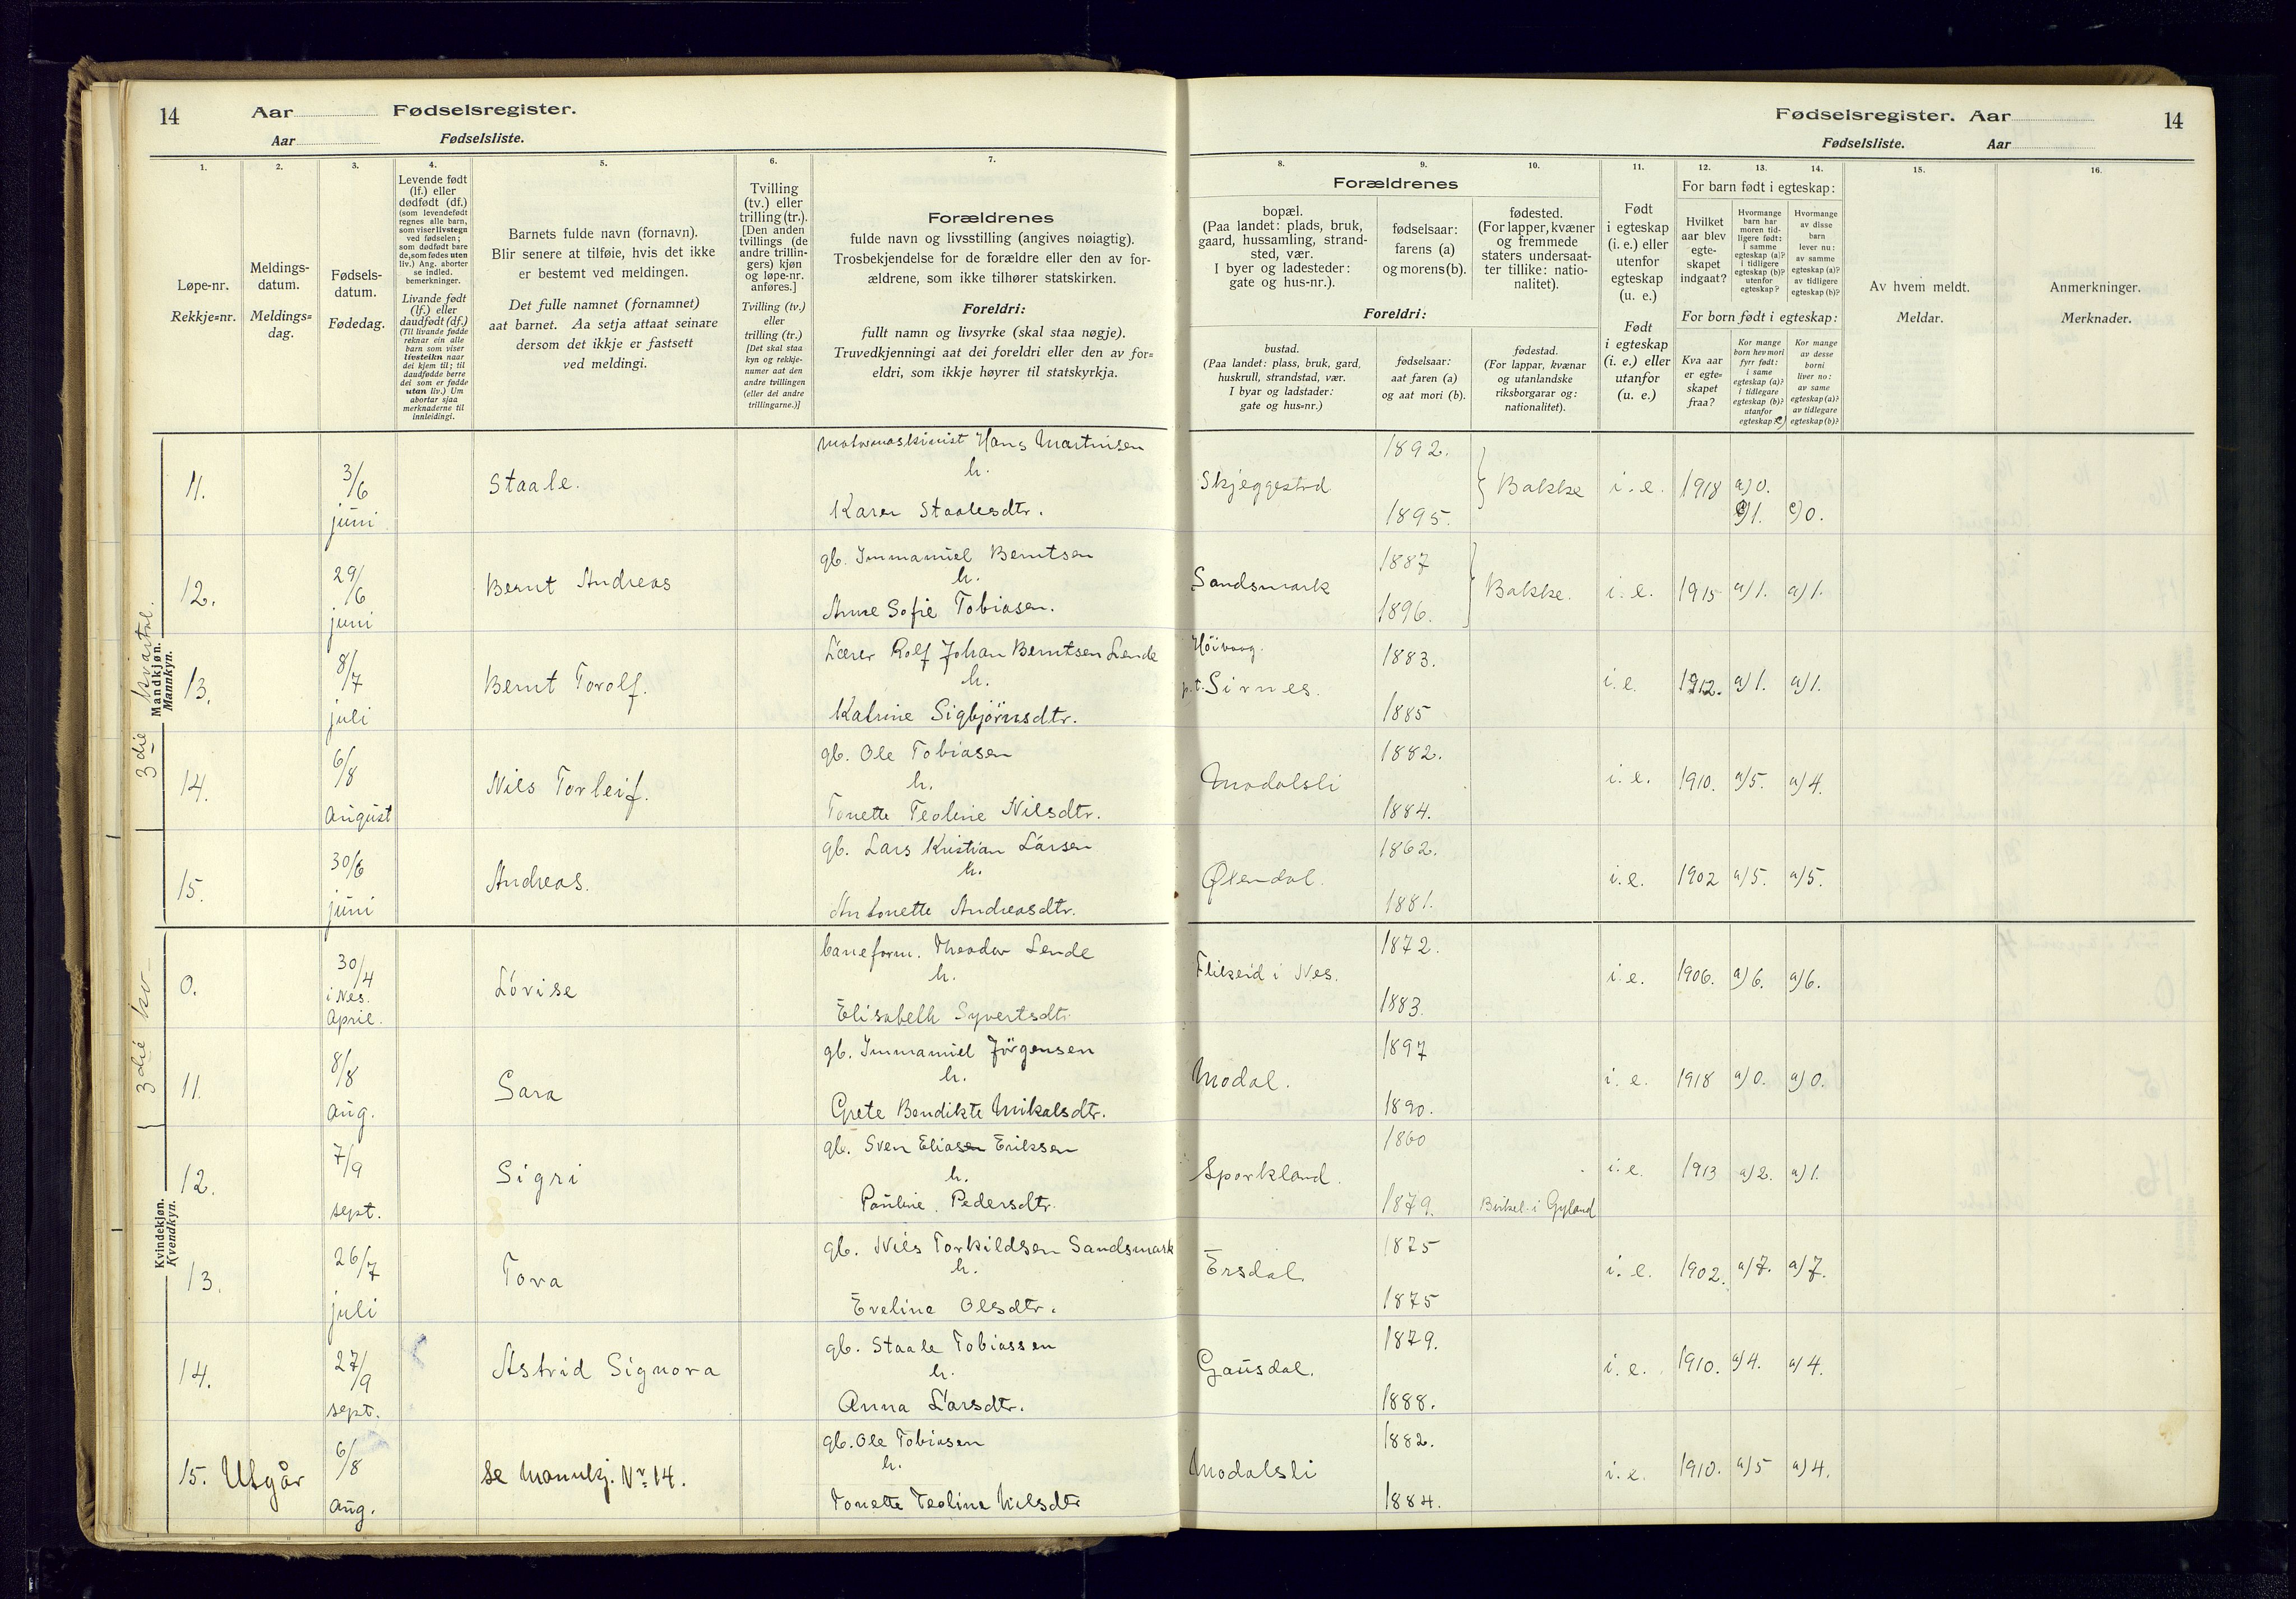 14 Aar Fødselsregister.
Aar Fødselsliste.
1. 2. 3. 4. 5. 6. 7.
Løpe-nr.
Rekkje=nr.
Meldings-
datum.
Meldings=
dag.
Fødsels-
datum.
Fødedag.
Levende født
(lf.) eller
dødfødt (df.)
(som levendefødt
regnes alle barn,
som viser livstegn
ved fødselen;
som dødfødt bare
de, som fødes uten
liv.) Ang. aborter
se indled.
bemerkninger.
Livande født
(lf.) eller
daudfødt (df.)
(Til livande fødde
reknar ein alle
barn som viser
livsteikn naar
dei kjem til; til
daudfødde berre
dei som er fødde
utan liv.) Um
abortar sjaa
merknaderne til
innleidingi.
Barnets fulde navn (fornavn).
Blir senere at tilføie, hvis det ikke
er bestemt ved meldingen.
Det fulle namnet (fornamnet)
aat barnet. Aa setja attaat seinare
dersom det ikkje er fastsett
ved meldingi.
Tvilling
(tv.) eller
trilling (tr.).
[Den anden
tvillings (de
andre trillin-
gers) kjøn
og løpe-nr.
anføres.]
Tvilling (tv.)
eller
trilling (tr.)
[Det skal staa
kyn og rekkje-
numer aat den
andre tvillingen
(eller dei andre
trillingarne.)]
Forældrenes
fulde navn og livsstilling (angives nøiagtig).
Trosbekjendelse for de forældre eller den av for-
ældrene, som ikke tilhører statskirken.
Foreldri:
fullt namn og livsyrke (skal staa nøgje).
Truvedkjenningi aat dei foreldri eller den av for=
eldri, som ikkje høyrer til statskyrkja.
3die kvartal.
Mandkjøn.
Mannkyn.
11. 3/6 juni Staale.
motormaskinist Hans Martinsen
h.
Karen Staalesdtr.
12. 29/6 juni Bernt Andreas
gb. Immanuel Berntsen
h.
Anne Sofie Tobiasen.
13. 8/7 juli Bernt Torolf.
Lærer Rolf Johan Berntsen Lende
h.
Katrine Sigbjörnsdtr.
14. 6/8 August Nils Torleif.
gb. Ole Tobiasen
h.
Tonette Teoline Nilsdtr.
15. 30/6 juni Andreas.
gb. Lars Kristian Larsen
h.
Antonette Andreasdtr.
3die kv
Kvindekjøn.
Kvendkyn.
0. 30/4 i Nes. April. Lovise
baneform. Theodor Lende
h.
Elisabeth Syvertsdtr.
11. 8/8 aug. Sara
gb. Immanuel Jörgensen
h.
Grete Bendikte Mikalsdtr.
12. 7/9 sept. Sigri
gb. Sven Eliasen Eriksen
h.
Pauline Pedersdtr.
13. 26/7 juli Tora
gb. Nils Torkildsen Sandsmark
h.
Eveline Olsdtr.
14. 27/9 sept. Astrid Signora
gb. Staale Tobiassen
h.
Anna Larsdtr.
15. Utgår 6/8 aug. se Mannkj. Nr 14.
gb. Ole Tobiasen
h.
Tonette Teoline Nilsdtr
Fødselsregister. Aar 14
Fødselsliste. Aar
8. 9. 10. 11. 12. 13. 14. 15. 16.
Forældrenes
bopæl.
(Paa landet: plads, bruk,
gaard, hussamling, strand-
sted, vær.
I byer og ladesteder:
gate og hus-nr.).
fødselsaar:
farens (a)
og morens (b).
fødested.
(For lapper, kvæner
og fremmede
staters undersaat-
ter tillike: natio-
nalitet).
Foreldri:
bustad.
(Paa landet: plass, bruk, gard,
huskrull, strandstad, vær.
I byar og ladstader:
gate og hus=nr.)
fødselsaar:
aat faren (a)
og aat mori (b).
fødestad.
(For lappar, kvænar
og utanlandske
riksborgarar og:
nationalitet).
Født
i egteskap
(i. e.) eller
utenfor
egteskap
(u. e.)
Født
i egteskap
(i. e.) eller
utanfor
(u. e.)
For barn født i egteskap:
Hvilket
aar blev
egte-
skapet
indgaat?
Hvormange
barn har
moren tid-
ligere født:
i samme
egteskap (a)?
i tidligere
egteskap (b)?
utenfor
egteskap?
Hvormange
av disse
barn
lever nu:
av samme
egteskap (a)?
av tidligere
egteskap (b)?
For born født i egteskap:
Kva aar
er egte=
skapet
fraa?
Kor mange
born hev mori
fyrr født:
i same
egteskap (a)?
i tidlegare
egteskap (b)?
utanfor
egteskap? c)
Kor mange
av desse
borni
liver no:
av same
egteskap (a)?
av tidlegare
egteskap (b)?
Av hvem meldt.
Meldar.
Anmerkninger.
Merknader.
Skjeggestad 1892. 1895. Bakke i. e. 1918 a) 0. c) 1. c) 0.
Sandsmark 1887 1896. Bakke. i. e. 1915 a) 1. a) 1.
Höivaag. p. t. Sirnes. 1883. 1885 i. e. 1912. a) 1. a) 1.
Modalsli 1882. 1884. i. e. 1910. a) 5. a) 4.
Øtendal. 1862. 1881. i. e. 1902 a) 5. a) 5.
Flikeid i Nes. 1872. 1883. i. e. 1906. a) 6. a) 6.
Modal. 1897 1890. i. e. 1918 a) 0. a) 0.
Sporkland. 1860 1879. Birkel. i Gyland i. e. 1913 a) 2. a) 1.
Ersdal 1875 1875 i. e. 1902. a) 7. a) 7.
Gausdal. 1879. 1888. i. e. 1910. a) 4. a) 4.
Modalsli 1882. 1884. i. e. 1910. a) 5 a) 4.